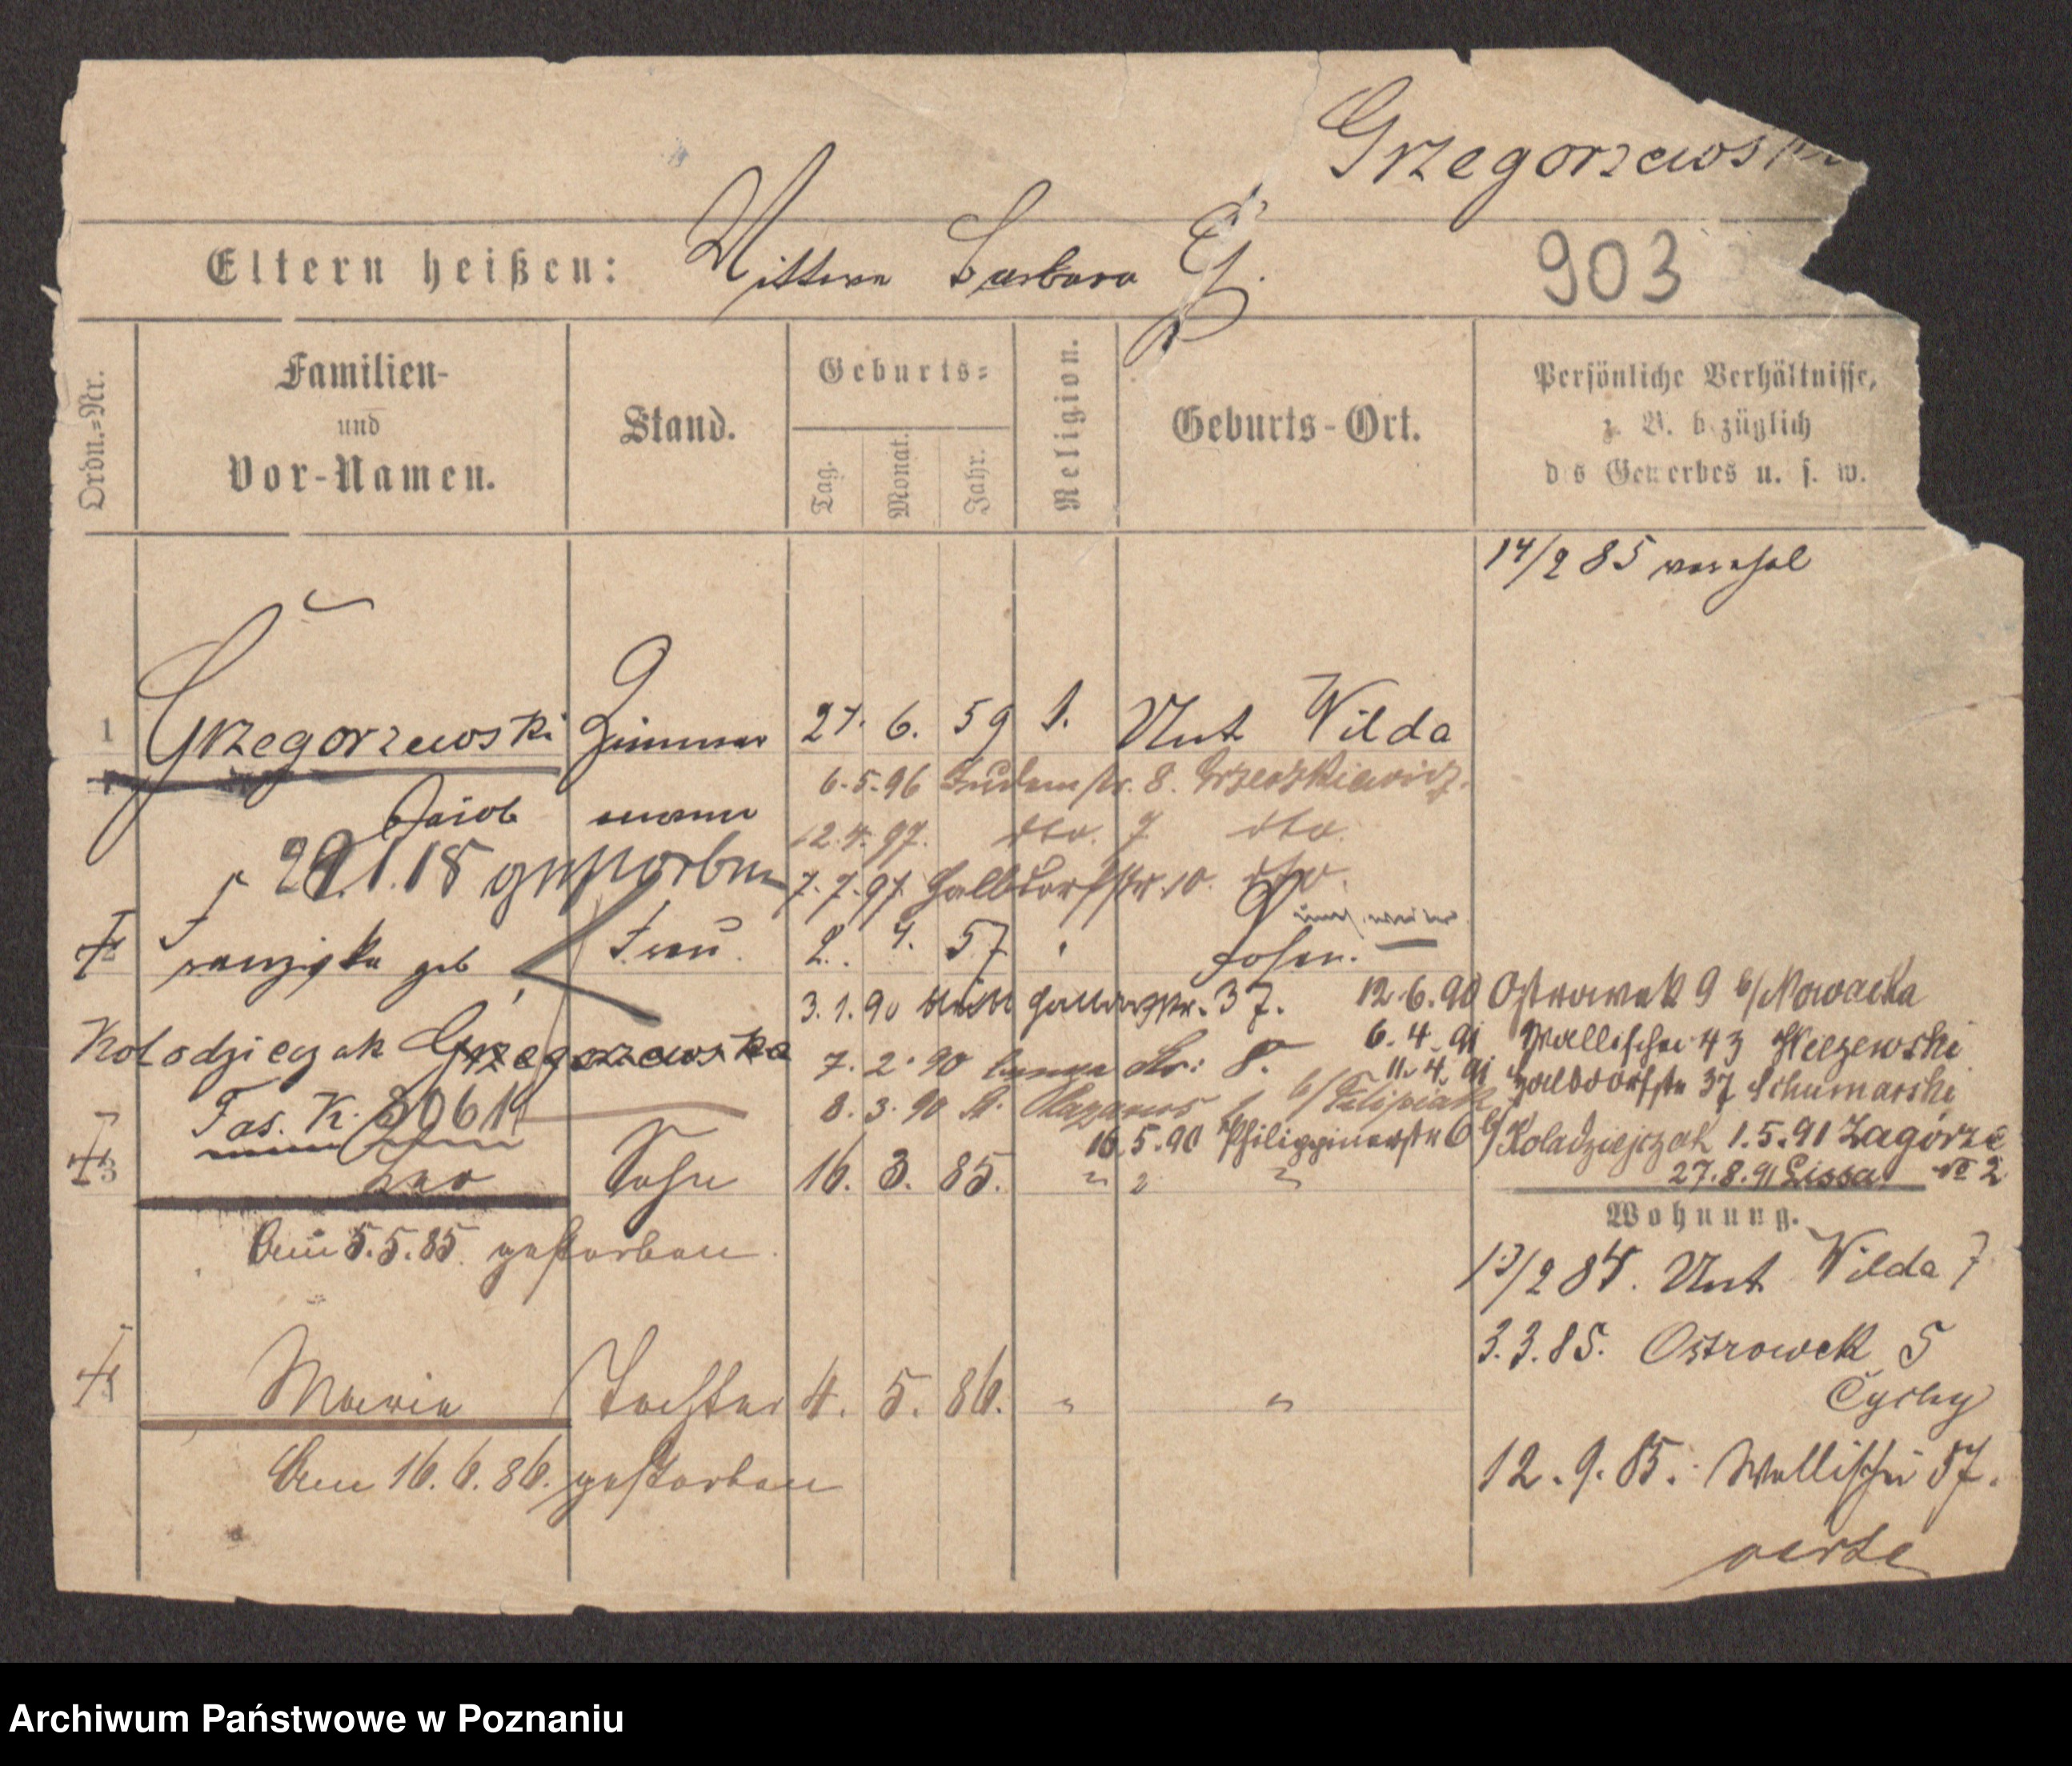 Grzegorzewski
Eltern heißen: Barbara G.
903
Ordn.-Nr.
Familien-
und
Vor-Namen.
Stand.
Geburts-
Tag.
Monat.
Jahr.
Religion.
Geburts-Ort.
Persönliche Verhältnisse,
z. B. bezüglich
des Gewerbes u. s. w.
14/2 85
1 Grzegorzewski Zimmer 27. 6. 59 Unt Wilda
6.5.96 8.
Jacob mann
12.4.97. dto. 7 dto.
29.1.18 gestorben
7.7.97 Halbdorfstr. 10. dto.
Franziska geb Frau. 2. 4. 57 Posen.
3.1.90 37. 12.6.90 Ostrowek 9 b/Nowacka
Kolodzieczak Grzegorzewska
7.2.90 lange Str: 8. 6.4.91 Wallischei 43
11.4.91 Halbdorfstr 37 Schumarski
8.3.90 St. Lazarus 1 b/Filipiak
Fas. K. 8061
16.5.90 Philippinerstr 6 b/Koladziejczak 1.5.91 Zagórze
3 Leo Sohn 16. 3. 85. " " "
27.8.91 Lissa No 2
den 5.5.85. gestorben.
Wohnung.
13/2 84. Unt Wilda 7
3.3.85. Ostrowek 5
Cychy
4 Maria Tochter 4. 5. 86. " "
den 16.6.86. gestorben
12.9.85. Wallischei 57.
verte
Archiwum Państwowe w Poznaniu